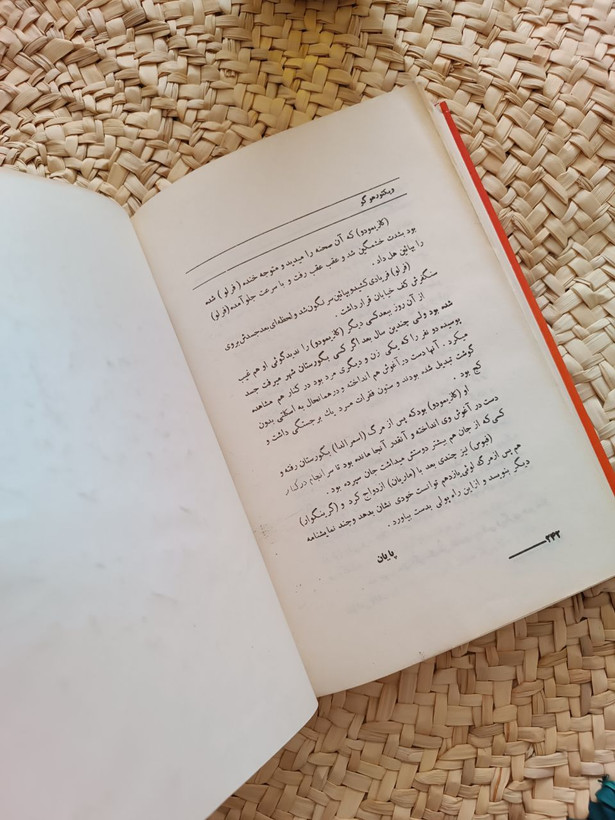 ویکتورهوگو
(کازیمودو) که آن صحنه را میدید و متوجه خنده (فرلو) شده
بود بشدت خشمگین شد و عقب عقب رفت و با سرعت جلو آمده (فرلو)
را بپائین هل داد.
(فرلو) فریادی کشید و بپائین سرنگون شد و لحظه‌ای بعد جسدش بروی
سنگفرش کف خیابان قرار داشت.
از آن روز ببعد کسی دیگر (کازیمودو) را ندید گوئی او هم غیب
شده بود ولی چندین سال بعد اگر کسی بگورستان شهر میرفت جسد
پوسیده دو نفر را که یکی زن و دیگری مرد بود در کنار هم مشاهده
میکرد. آنها دست در آغوش هم انداخته و در همانحال به اسکلتی بدون
گوشت تبدیل شده بودند و ستون فقرات مرد یك برجستگی داشت و
کج بود.
او (کازیمودو) بود که پس از مرگ (اسمرالدا) بگورستان رفته و
دست در آغوش وی انداخته و آنقدر آنجا مانده بود تا سرانجام در کنار
کسی که از جان هم بیشتر دوستش میداشت جان سپرده بود.
(فبوس) نیز چندی بعد با (ماریان) ازدواج کرد و (گرینگوار)
هم پس از مرگ لوئی یازدهم توانست خودی نشان بدهد و چند نمایشنامه
دیگر بنویسد و از این راه پولی بدست بیاورد.
پایان
۲۴۲